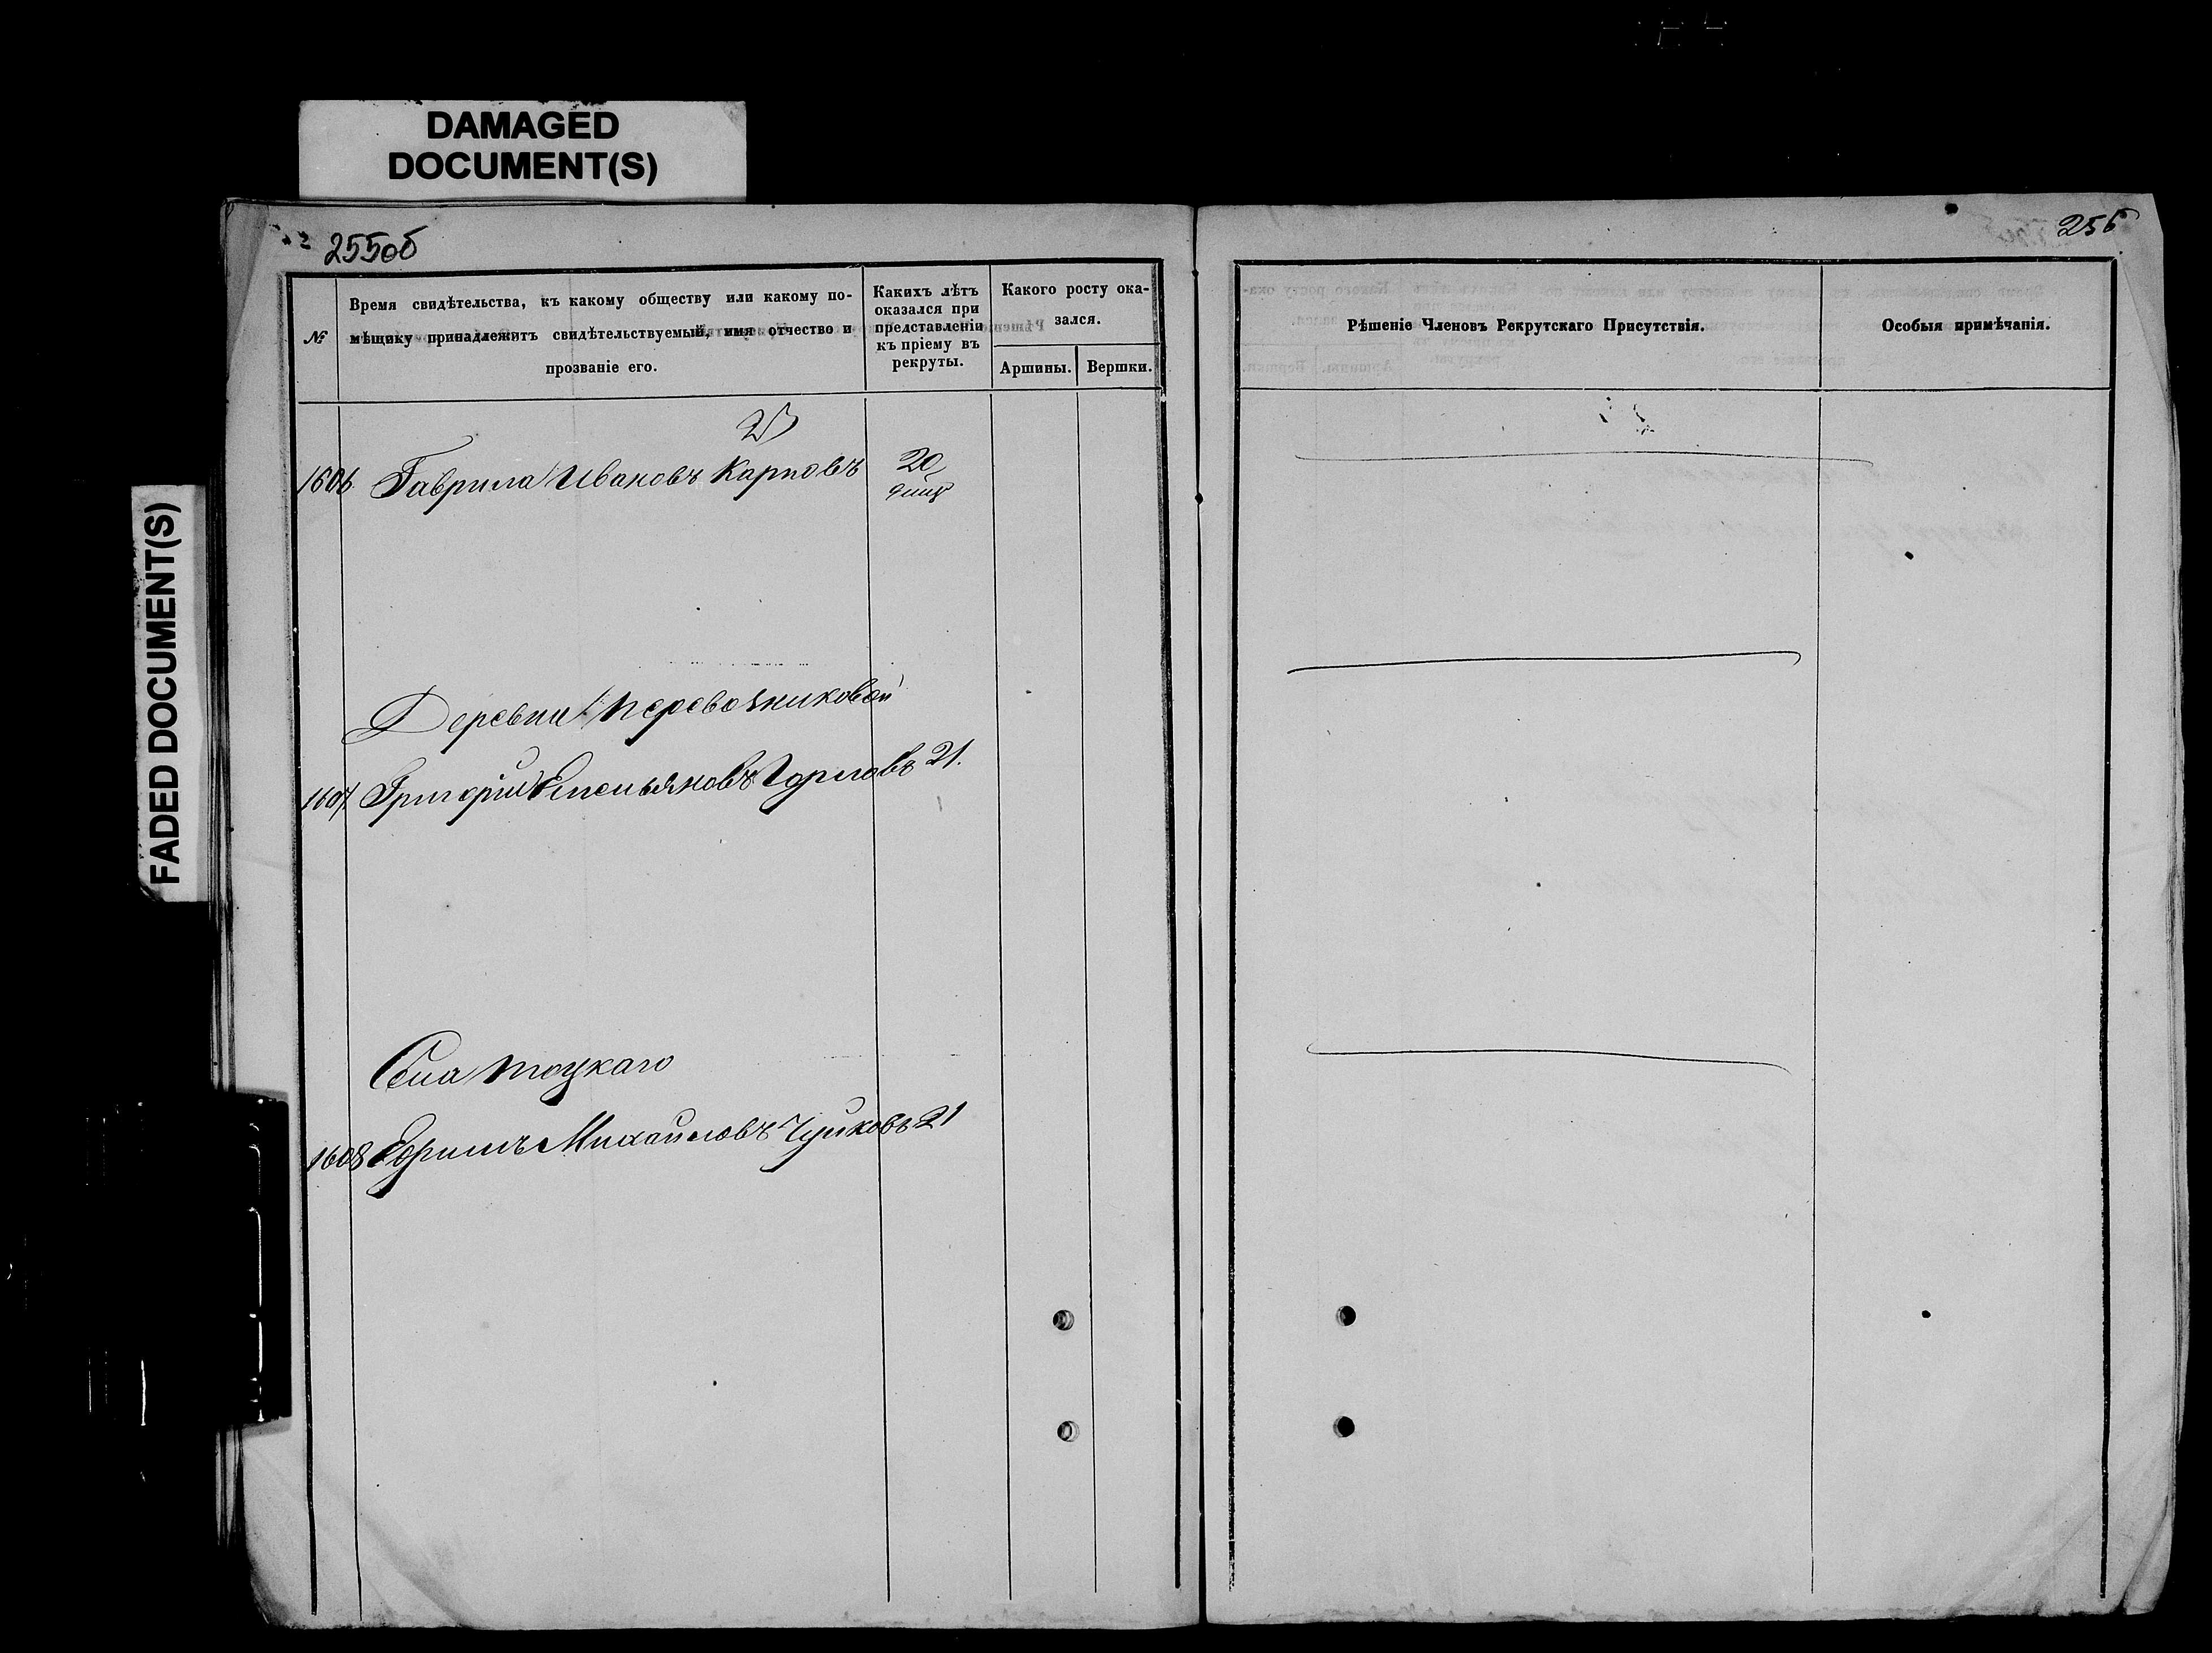 DAMAGED
DOCUMENT(S)
FADED DOCUMENT(S)
255об
№
Время свидѣтельства, къ какому обществу или какому по-
мѣщику принадлежитъ свидѣтельствуемый, имя отчество и
прозваніе его.
Какихъ лѣтъ
оказался при
представленіи
къ пріему въ
рекруты.
Какого росту ока-
зался.
Аршины. Вершки.
1606 Гаврила Ивановъ Карповъ 20
Деревни Перевозниковой
1607 Григорій Емельяновъ Горловъ 21.
Села Тоцкаго
1608 Ефимъ Михайловъ Чуйковъ 21
256
Рѣшеніе Членовъ Рекрутскаго Присутствія.
Особыя примѣчанія.